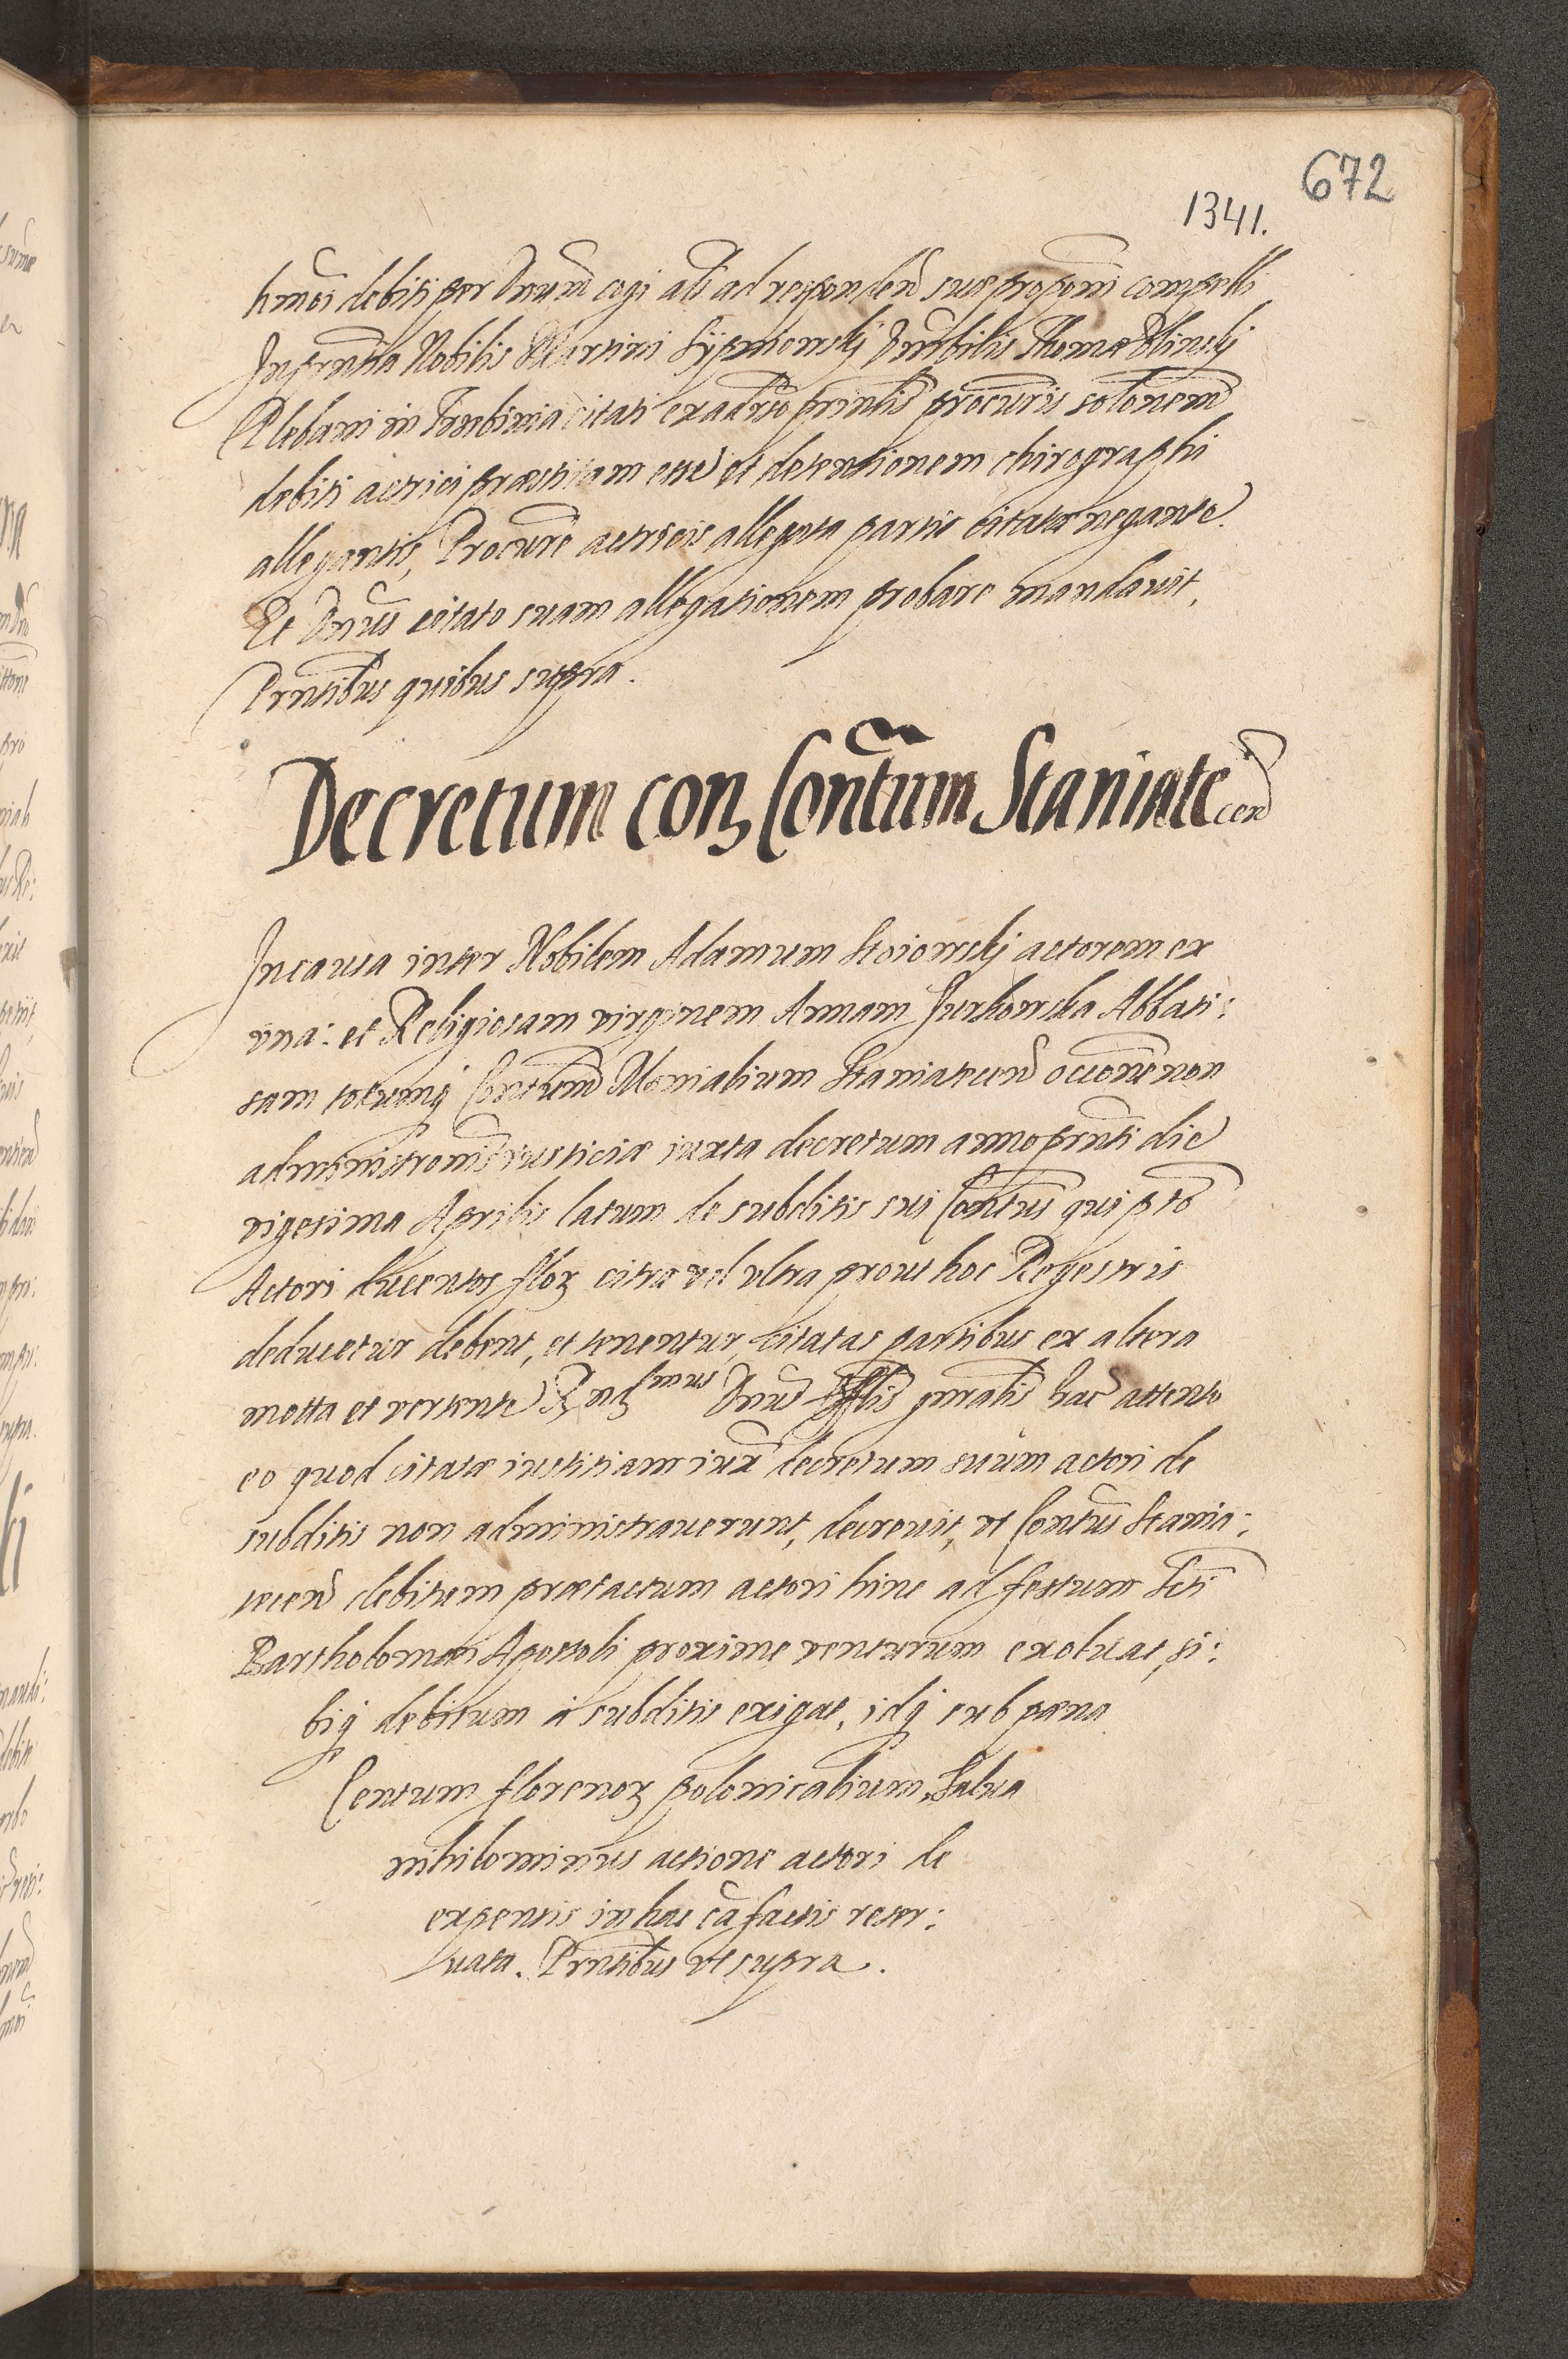 672
1341.
hmõi debiti per Dnum cogi als ad responden suæ propõni compelli
In prntia Nobilis Martini Lypnowskj Dnobilis Thomæ Plinskj
Plebani in Trzebinia citati ex adverso prntis procuris solonem
debiti actrici præstitam esse et detentionem chirographi
allegantis, Procure actricis allegata partis citatæ negante.
Et Dnus citato suam allegationem probare mandavit,
Prntibus quibus supra.
Decretum con Contum Staniatecen
In causa inter Nobilem Adamum Stoiowskj actorem ex
vna: et Religiosam virginem Annam Jurkowska Abbati:
sam totumq Contum Monialium Staniatecen occone non
administronis iusticiæ iuxta decretum anno prnti die
vigesima Aprilis latum de subditis sui Contus qui pto
Actori ducentos flor citra vel vltra prout hoc Regestris
deducetur debent, et tenentur, citatas partibus ex altera
mota et vertente Rndmus Dnus Offlis gnralis hac attento
eo quod citatæ iustitiam iux decretum suum actori de
subditis non administraverunt, decrevit, vt Contus Stania:
tecen debitum prætactum actori hinc ad festum Scti
Bartholomæi Apostoli proxime venturum exolvat, si:
biq debitum a subditis exigat, idq sub pæna
Centum florenor polonicalium, Salva
nihilominus actione actori de
expensis in hac ca factis reser:
vata. Prntibus vt supra.